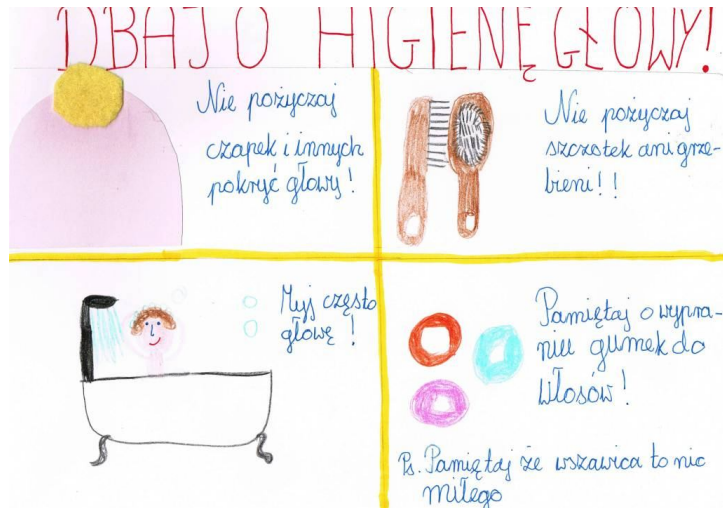 DBAJ O HIGIENĘ GŁOWY!
Nie pożyczaj
czapek i innych
pokryć głowy!
Nie pożyczaj
szczotek ani grze-
bieni!!
Myj często
głowę!
Pamiętaj o wypra-
niu gumek do
włosów!
Ps. Pamiętaj że wszawica to nic
miłego